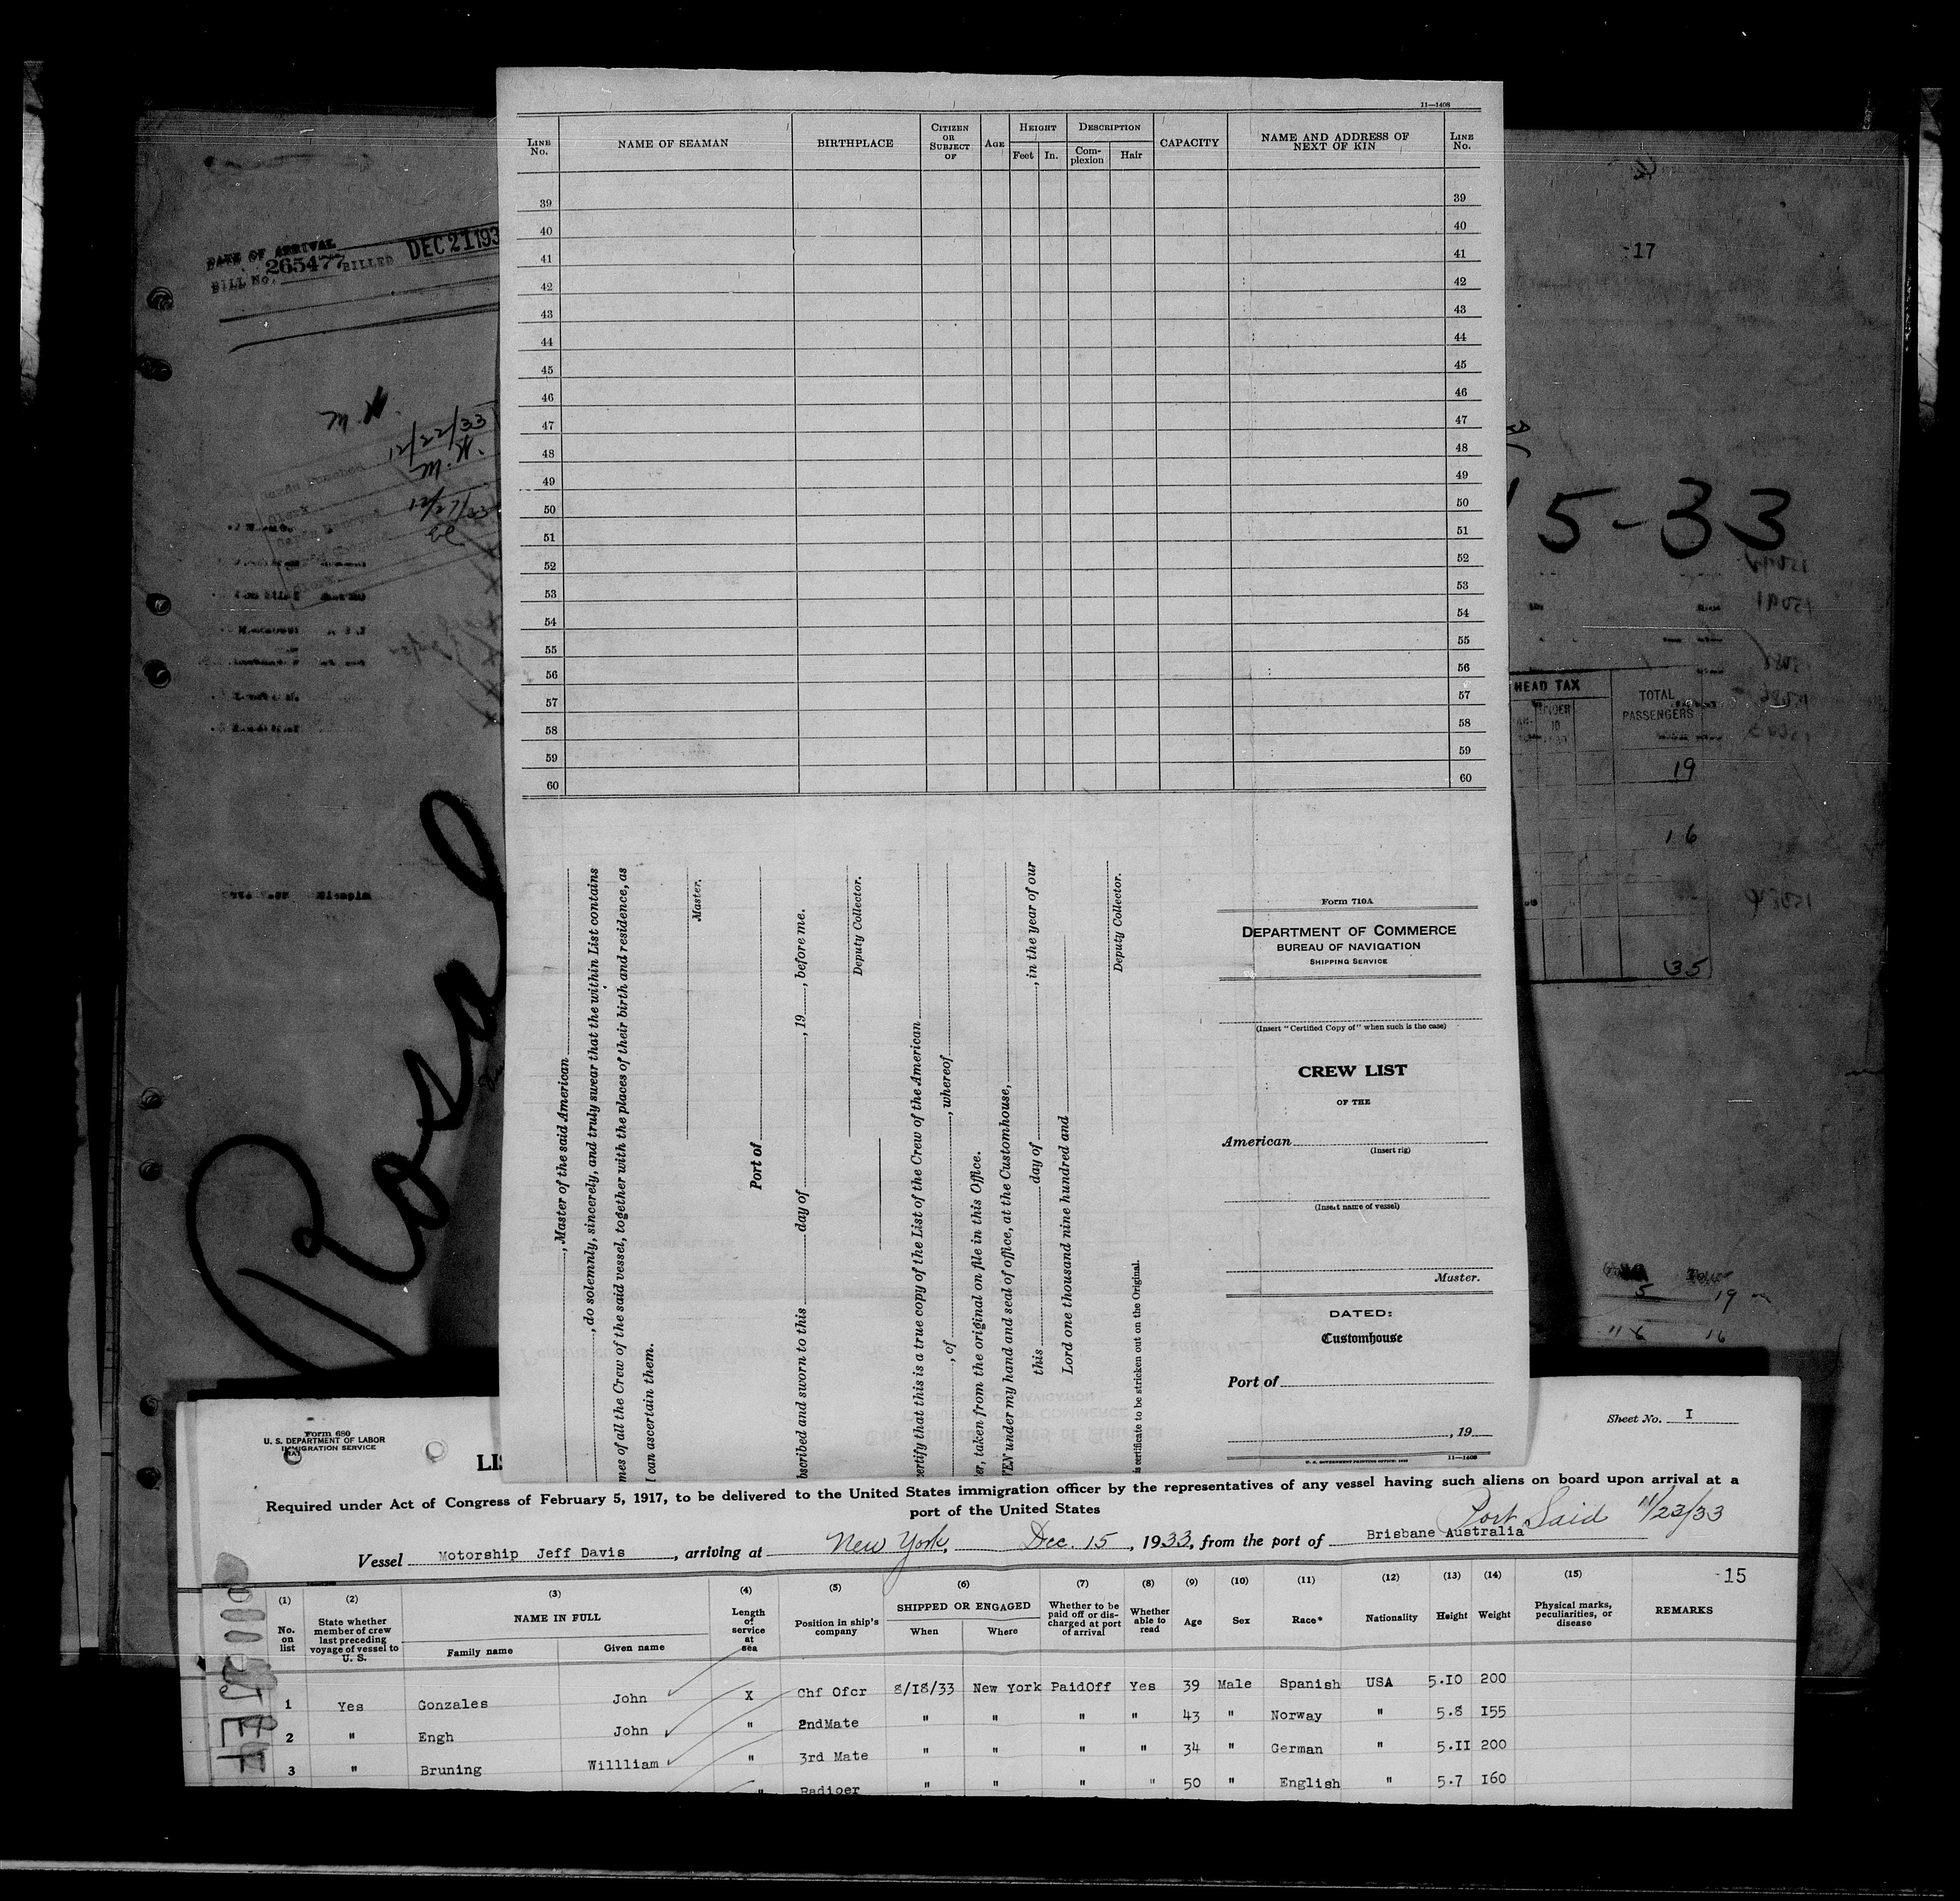 11—1408
LINE No. NAME OF SEAMAN BIRTHPLACE CITIZEN OR SUBJECT OF AGE HEIGHT Feet In. DESCRIPTION Com-plexion Hair CAPACITY NAME AND ADDRESS OF NEXT OF KIN LINE No.
39 39
40 40
41 41
42 42
43 43
44 44
45 45
46 46
47 47
48 48
49 49
50 50
51 51
52 52
53 53
54 54
55 55
56 56
57 57
58 58
59 59
60 60
DATE OF ARRIVAL
BILL No. 265477 BILLED DEC 21 193
12/22/33
12/21/33
Rosal
-17
15-33
HEAD TAX
TOTAL PASSENGERS
19
16
35
5 19
16
, Master of the said American
, do solemnly, sincerely, and truly swear that the within List contains
mes of all the Crew of the said vessel, together with the places of their birth and residence, as
I can ascertain them.
Master.
Port of
bscribed and sworn to this day of , 19 , before me.
Deputy Collector.
ertify that this is a true copy of the List of the Crew of the American
, of , whereof
er, taken from the original on file in this Office.
VEN under my hand and seal of office, at the Customhouse,
this day of , in the year of our
Lord one thousand nine hundred and
Deputy Collector.
is certificate to be stricken out on the Original.
Form 710A
DEPARTMENT OF COMMERCE
BUREAU OF NAVIGATION
SHIPPING SERVICE
(Insert "Certified Copy of" when such is the case)
CREW LIST
OF THE
American
(Insert rig)
(Insert name of vessel)
Master.
DATED:
Customhouse
Port of
, 19
11—1408
Form 680
U. S. DEPARTMENT OF LABOR
IMMIGRATION SERVICE
Sheet No. I
LIS
Required under Act of Congress of February 5, 1917, to be delivered to the United States immigration officer by the representatives of any vessel having such aliens on board upon arrival at a
port of the United States
Port Said 11/23/33
Vessel Motorship Jeff Davis , arriving at New York, Dec. 15 , 1933, from the port of Brisbane Australia
-15
(1) (2) (3) (4) (5) (6) (7) (8) (9) (10) (11) (12) (13) (14) (15)
No. on list State whether member of crew last preceding voyage of vessel to U. S. NAME IN FULL Family name Given name Length of service at sea Position in ship's company SHIPPED OR ENGAGED When Where Whether to be paid off or dis-charged at port of arrival Whether able to read Age Sex Race* Nationality Height Weight Physical marks, peculiarities, or disease REMARKS
1 Yes Gonzales John X Chf Ofcr 8/18/33 New York PaidOff Yes 39 Male Spanish USA 5.10 200
2 " Engh John " 2ndMate " " " " 43 " Norway " 5.8 155
3 " Bruning Willliam " 3rd Mate " " " " 34 " German " 5.11 200
" Radioer " " " " 50 " English " 5.7 160